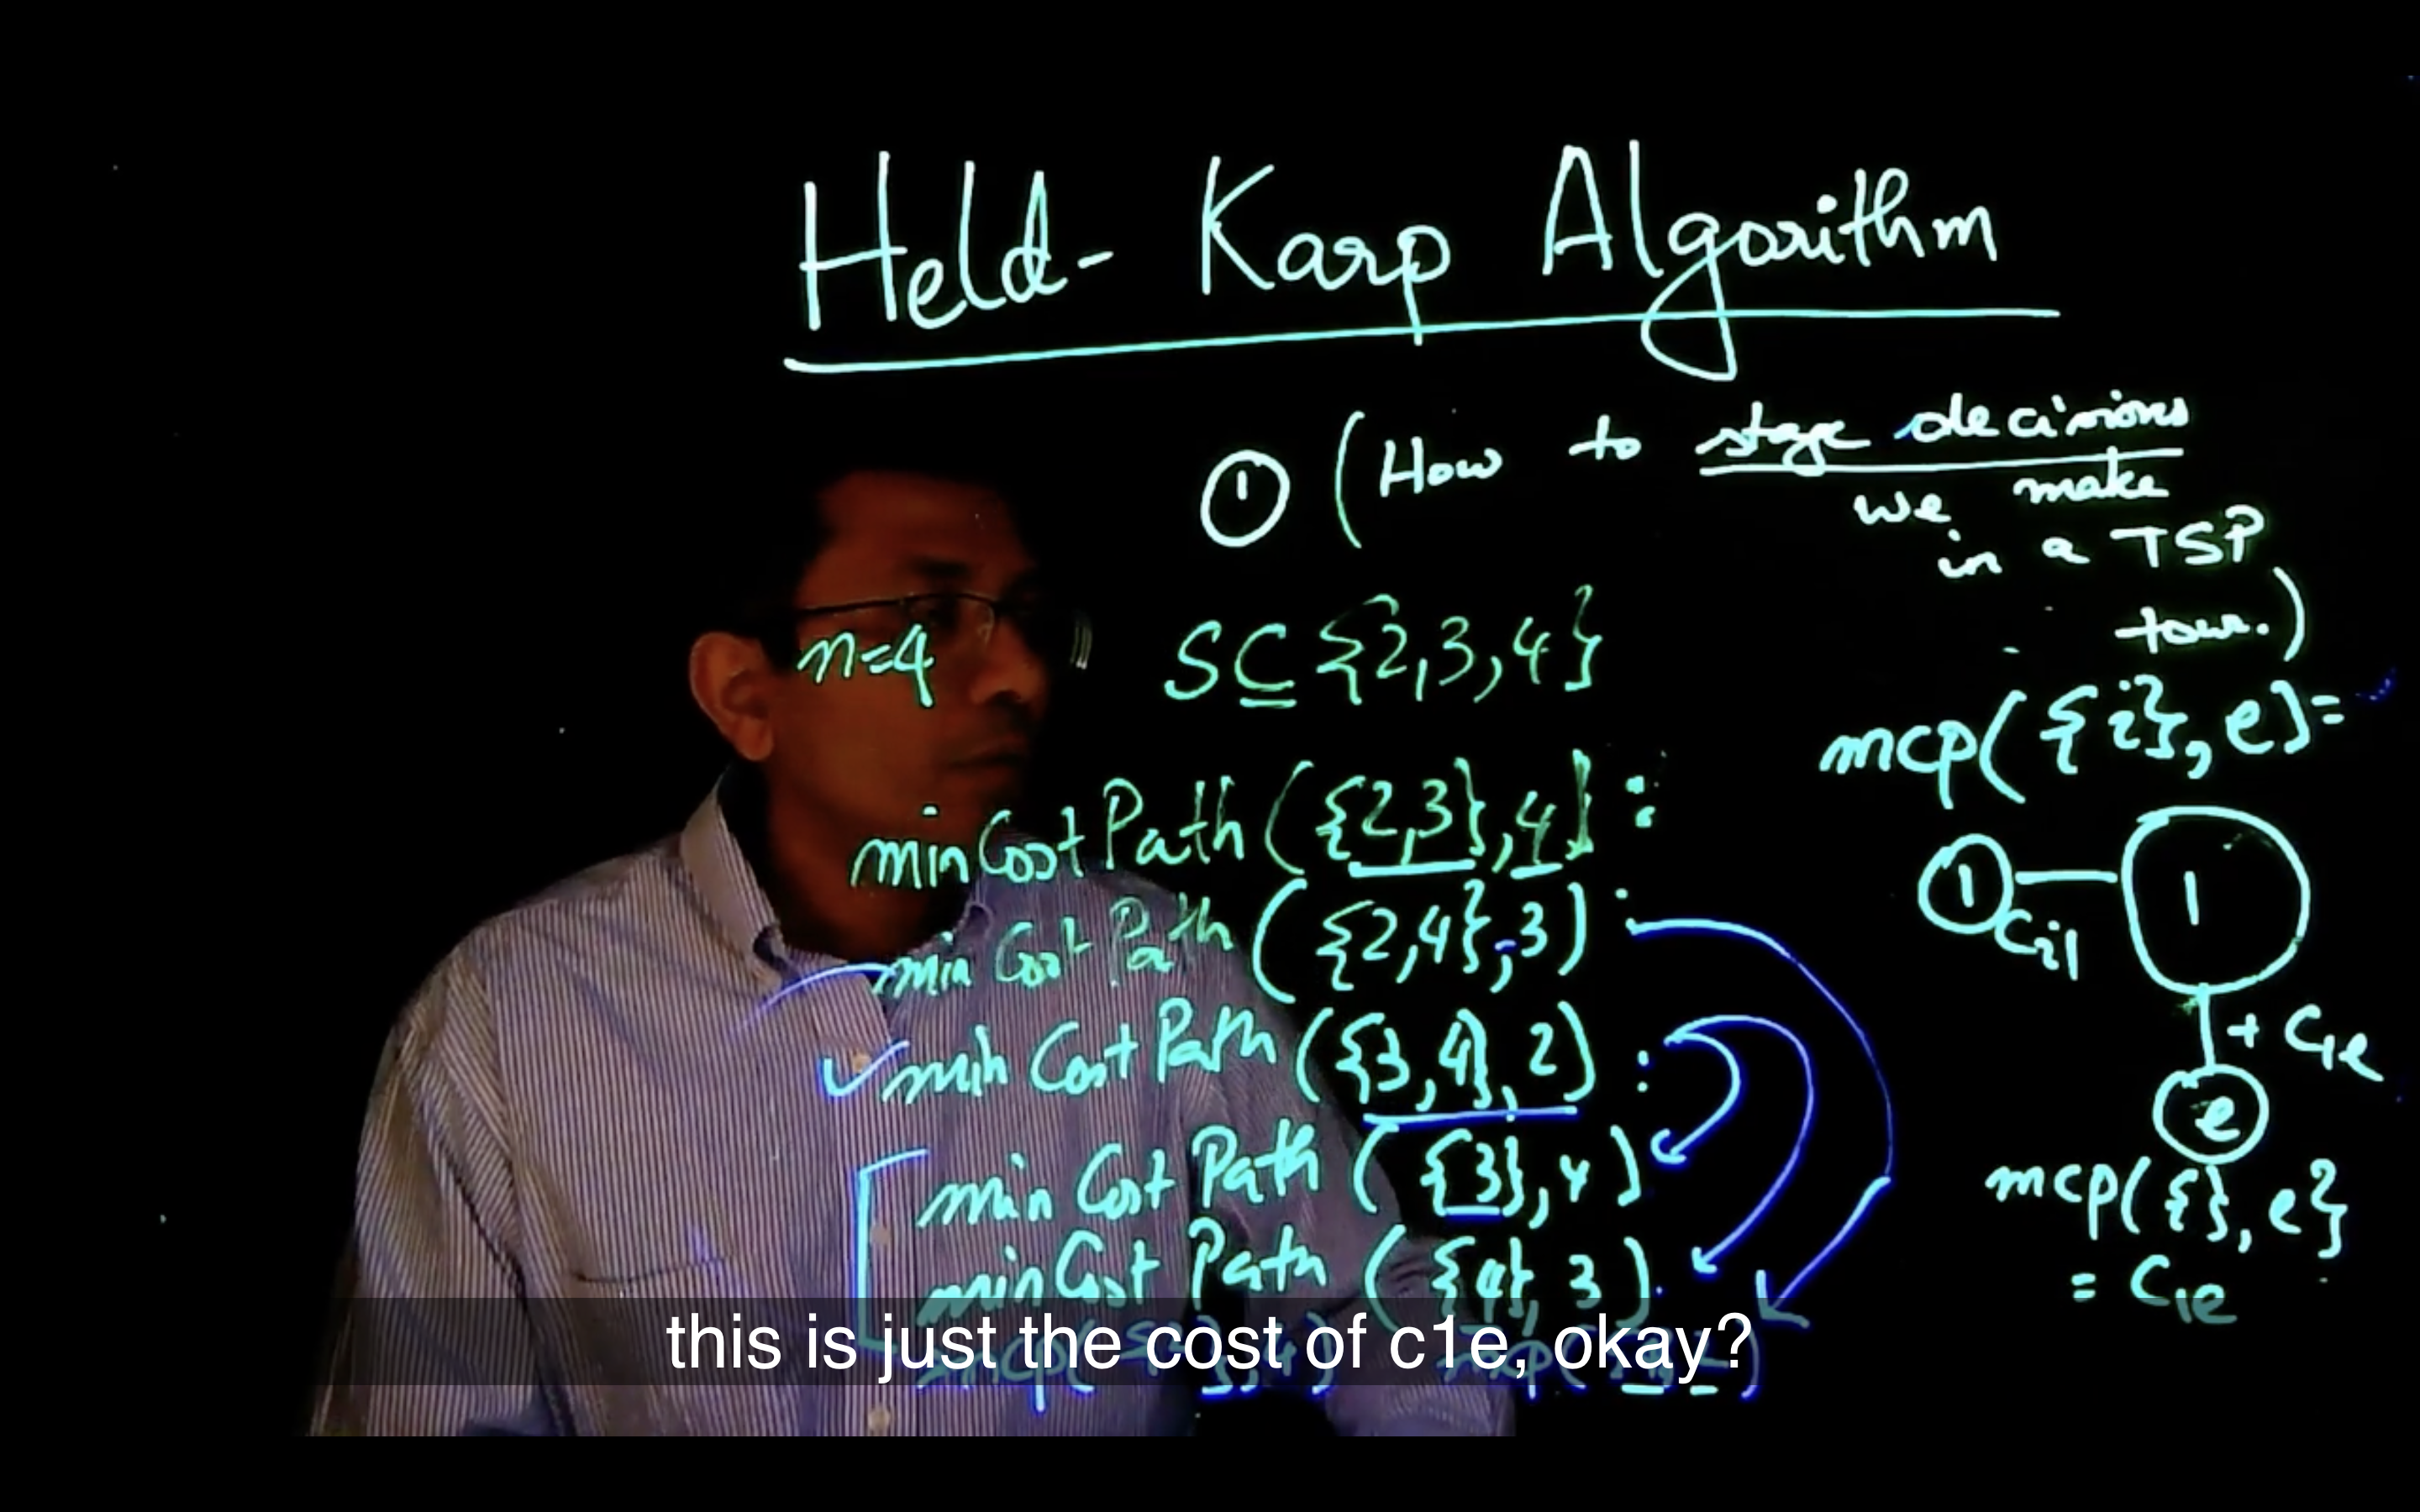 Held- Karp Algorithm
① (How to stage decisions
we make
in a TSP
tour.)
n=4
S ⊆ {2,3,4}
mcp({i}, e)=
minCostPath({2,3},4) :
min Cost Path ({2,4},3) :
min Cost Path ({3,4},2) :
min Cost Path ({3},4)
minCost Path ({4},3)
1
Ci1
1
+ C1e
e
mcp({}, e}
= C1e
this is just the cost of c1e, okay?